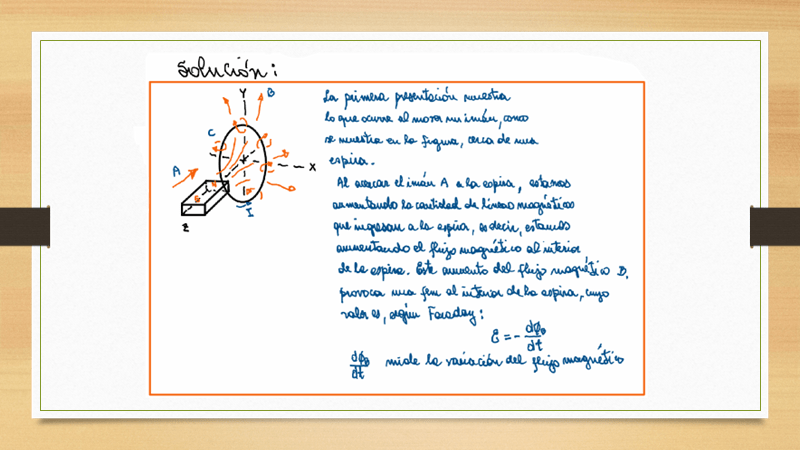 Solución:
Y
B
C
X
A
D
I
Z
La primera presentación muestra
lo que ocurre al mover un imán, como
se muestra en la figura, cerca de una
espira.
Al acercar el imán A a la espira, estamos
aumentando la cantidad de líneas magnéticas
que ingresan a la espira, es decir, estamos
aumentando el flujo magnético al interior
de la espira. Este aumento del flujo magnético B,
provoca una fem al interior de la espira, cuyo
valor es, según Faraday:
ε = - dϕB/dt
dϕB/dt mide la variación del flujo magnético